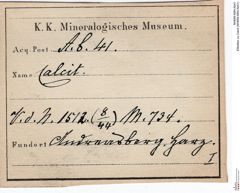 K. K. Mineralogisches Museum.
Acq. Post. A. b. 41.
Name Calcit.
V. d. N. 1512 (8/44) M. 734.
Fundort Andreasberg, Harz.
I